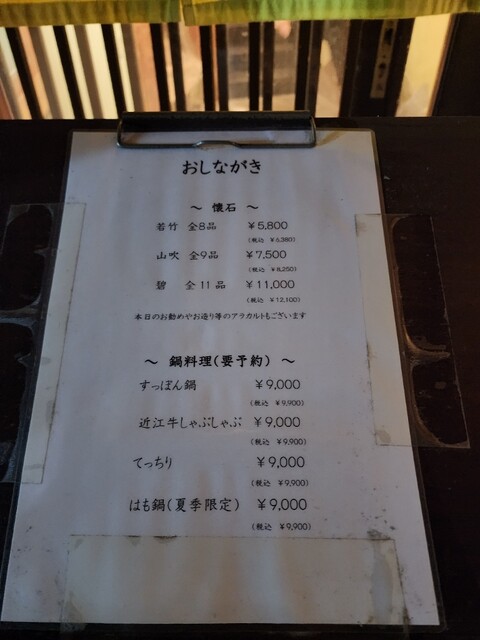 おしながき
～ 懐石 ～
若竹 全8品 ￥5,800
(税込 ￥6,380)
山吹 全9品 ￥7,500
(税込 ￥8,250)
碧 全11品 ￥11,000
(税込 ￥12,100)
本日のお勧めやお造り等のアラカルトもございます
～ 鍋料理(要予約) ～
すっぽん鍋 ￥9,000
(税込 ￥9,900)
近江牛しゃぶしゃぶ ￥9,000
(税込 ￥9,900)
てっちり ￥9,000
(税込 ￥9,900)
はも鍋(夏季限定) ￥9,000
(税込 ￥9,900)